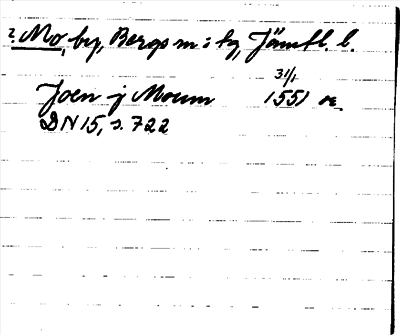 ?. Mo, by, Bergs sn: by, Jämtl. l.
31/1
Joen j Moum 1551 or.
DN 15, s. 722